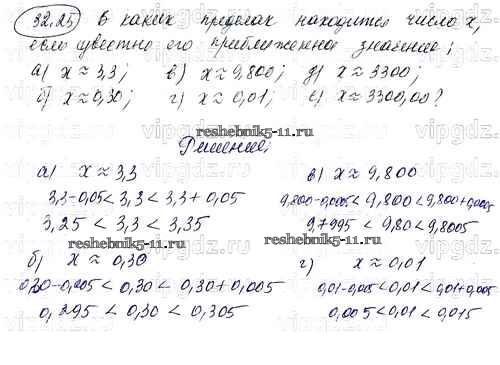 32.25 В каких пределах находится число x,
если известно его приближенное значение:
а) x ≈ 3,3; в) x ≈ 9,800; д) x ≈ 3300;
б) x ≈ 0,30; г) x ≈ 0,01; е) x ≈ 3300,00?
reshebnik5-11.ru
Решение:
а) x ≈ 3,3
в) x ≈ 9,800
3,3-0,05 < 3,3 < 3,3+0,05
9,800-0,0005 < 9,800 < 9,800+0,0005
3,25 < 3,3 < 3,35
9,7995 < 9,80 < 9,8005
reshebnik5-11.ru
reshebnik5-11.ru
б) x ≈ 0,30
г) x ≈ 0,01
0,30-0,005 < 0,30 < 0,30+0,005
0,01-0,005 < 0,01 < 0,01+0,005
0,295 < 0,30 < 0,305
0,005 < 0,01 < 0,015